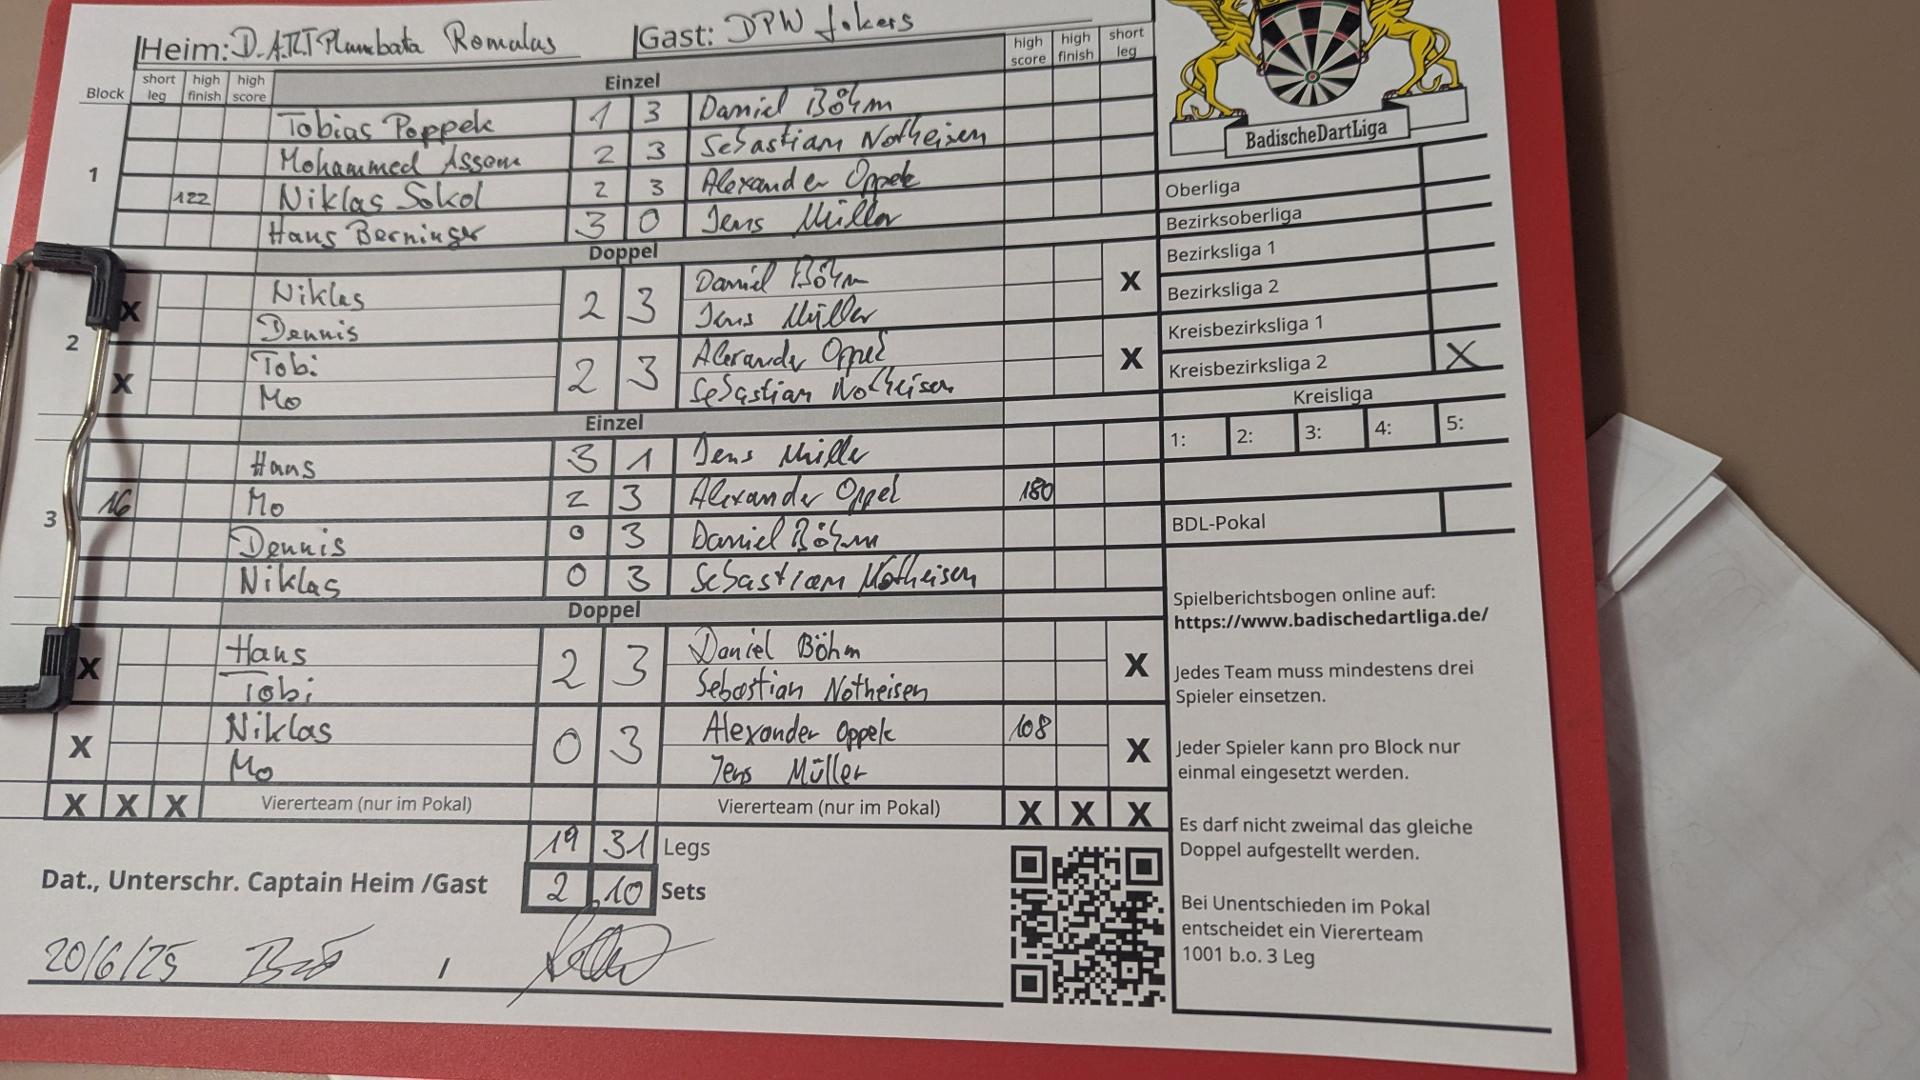 Heim: D.A.R.T Plumbata Romulas Gast: DPW Jokers
Block short leg high finish high score Einzel high score high finish short leg
1
Tobias Poppek 1 3 Daniel Böhm
Mohammed Assem 2 3 Sebastian Notheisen
122 Niklas Sokol 2 3 Alexander Oppek
Hans Berninger 3 0 Jens Müller
Doppel
2
X Niklas 2 3 Daniel Böhm X
Dennis Jens Müller
X Tobi 2 3 Alexander Oppel X
Mo Sebastian Notheisen
Einzel
3
Hans 3 1 Jens Müller
16 Mo 2 3 Alexander Oppel 180
Dennis 0 3 Daniel Böhm
Niklas 0 3 Sebastian Notheisen
Doppel
X Hans 2 3 Daniel Böhm X
Tobi Sebastian Notheisen
X Niklas 0 3 Alexander Oppek 108 X
Mo Jens Müller
X X X Viererteam (nur im Pokal) Viererteam (nur im Pokal) X X X
19 31 Legs
Dat., Unterschr. Captain Heim /Gast 2 10 Sets
20/6/25 /
BadischeDartLiga
Oberliga
Bezirksoberliga
Bezirksliga 1
Bezirksliga 2
Kreisbezirksliga 1
Kreisbezirksliga 2 X
Kreisliga
1: 2: 3: 4: 5:
BDL-Pokal
Spielberichtsbogen online auf:
https://www.badischedartliga.de/
Jedes Team muss mindestens drei
Spieler einsetzen.
Jeder Spieler kann pro Block nur
einmal eingesetzt werden.
Es darf nicht zweimal das gleiche
Doppel aufgestellt werden.
Bei Unentschieden im Pokal
entscheidet ein Viererteam
1001 b.o. 3 Leg